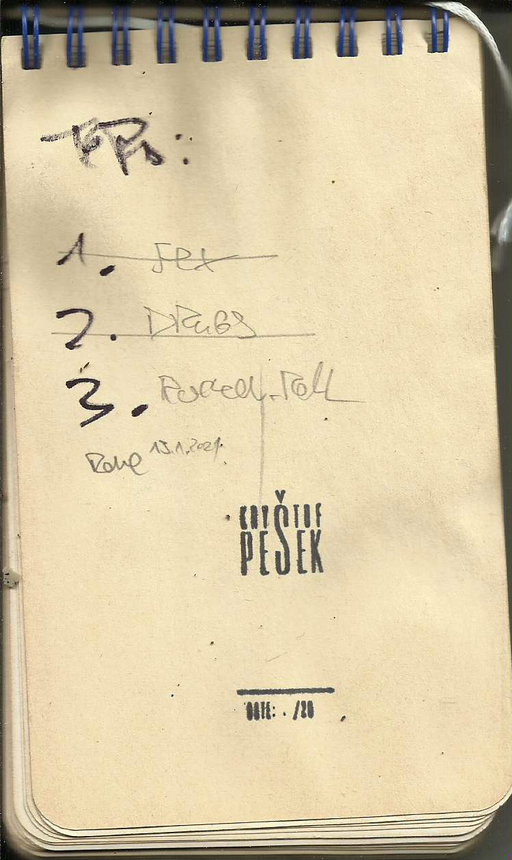 EPs:
1. Sex
2. DRUGS
3. Rock'n.Roll
Done 15.1.2021.
KRYŠTOF
PEŠEK
DATE: . /20